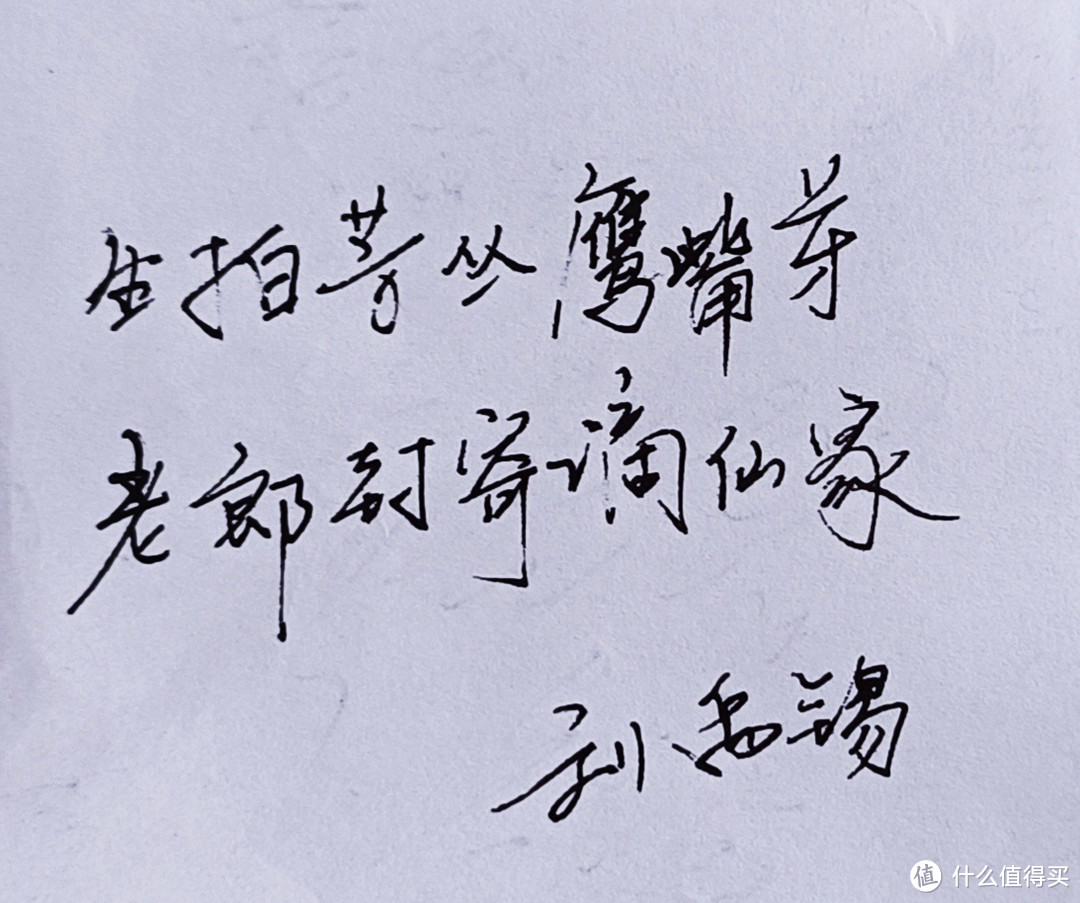 生拍芳丛鹰嘴芽
老郎封寄谪仙家
刘禹锡
值 什么值得买